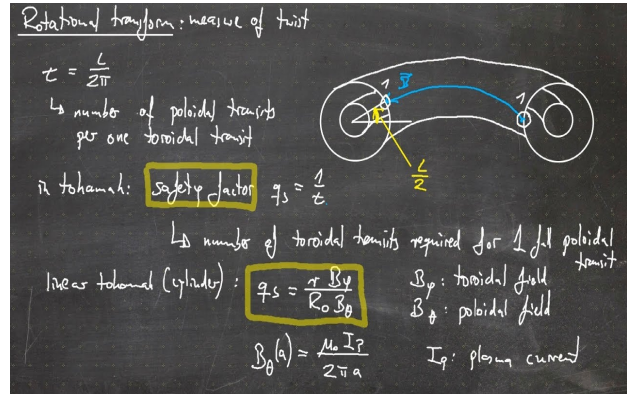 Rotational transform: measure of twist
t = L / 2π
↳ number of poloidal transits
per one toroidal transit
1 B 1
L / 2
in tokamak: safety factor qs = 1 / t
↳ number of toroidal transits required for 1 full poloidal
transit
linear tokamak (cylinder): qs = r Bφ / R₀ Bθ
Bφ: toroidal field
Bθ: poloidal field
Bθ(a) = μ₀ Ip / 2π a
Ip: plasma current